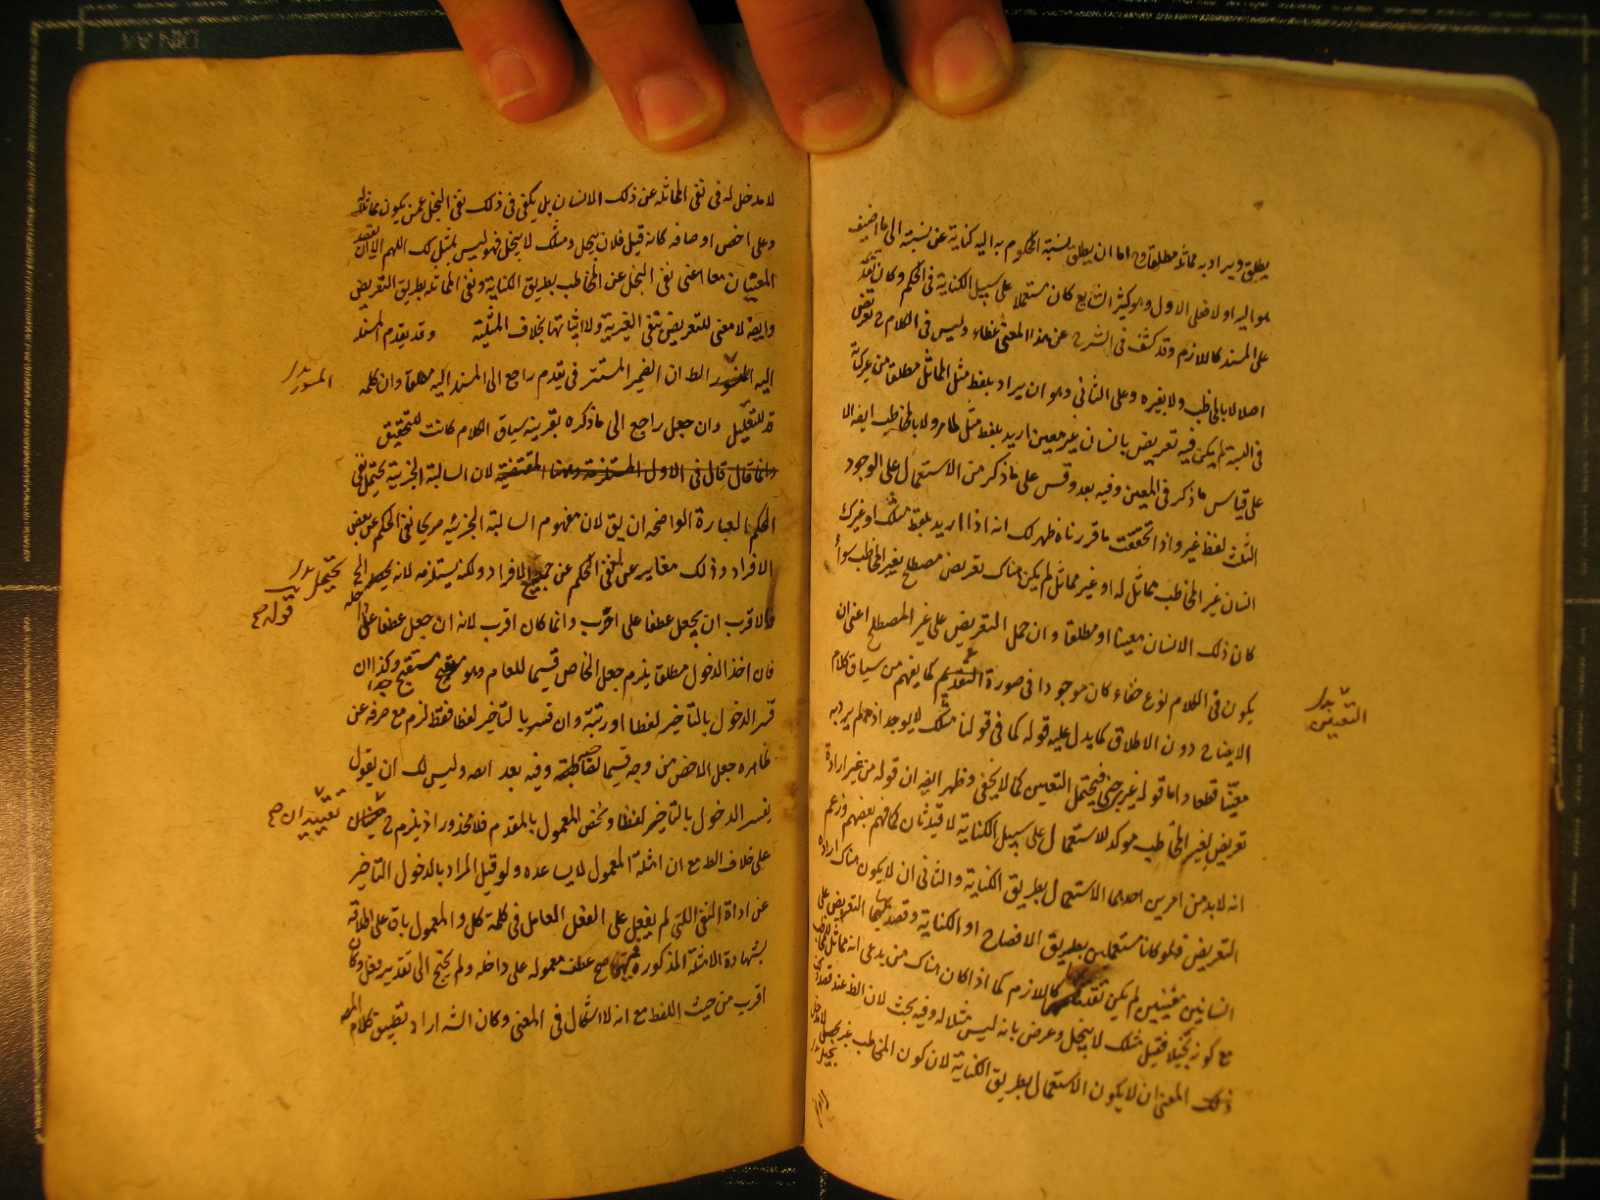 يطلق ويراد به مماثله مطلقا واما ان يطلق نسبة المحكوم به اليه كناية عن نسبته الى ما اضيف
هو اليه اولا فعلى الاول وهو كثير الشايع كان مستعملا على سبيل الكناية فى الحكم وكان تقد
على المسند كاللازم وقد كشف فى الشرح عن هذا المعنى غطاء وليس فى الكلام ح تعريض
اصلا لا بالمخاطب ولا بغيره وعلى الثانى وهو ان يراد بلفظ مثل المماثل مطلقا من غير كناية
فى النسبة لم يكن فيه تعريض بانسان غير معين اريد بلفظ مثل ظاهر ولا بالمخاطب ايضا لا
على قياس ما ذكر فى المعين وفيه بعد وقس على ما ذكر من الاستعمال على الوجود
الثلث لفظ غير واذا تحققت ما قررناه ظهر لك انه اذا اريد بلفظ مثلك او غيرك
انسان غير المخاطب مماثل له او غير مماثل لم يكن هناك تعريض مصطلح بغير المخاطب سواء
كان ذلك الانسان معينا او مطلقا وان حمل التعريض على غير المصطلح اعنى ان
يكون فى الكلام نوع خفاء كان موجودا فى صورة التقديم كما يفهم من سياق كلام
الايضاح دون الاطلاق كما يدل عليه قوله كما فى قولنا مثلك لا يوجد اذ لم يرد به
معينا قطعا واما قوله غيرى جنى فيحتمل التعيين كما لا يخفى وظهر ايضا ان قوله من غير ارادة
تعريض لغير المخاطب موكد للاستعمال على سبيل الكناية لا قيد ثان كما فهم بعضهم وزعم
انه لا بد من امرين احدهما الاستعمال بطريق الكناية والثانى ان لا يكون هناك ارادة
التعريض فلو كانا مستعملين بطريق الافصاح او الكناية وقصد بهما التعريض على
انسانين معينين لم يكن تقديمهما كاللازم كما اذا كان هناك من يدعى انه مماثل
مع كونه بخيلا فقيل مثلك لا يبخل وعرض بانه ليس مثلا له وفيه بحث لان الظ عند قصد
ذلك المعنى ان لا يكون الاستعمال بطريق الكناية لان كون المخاطب غير بخيل
التعيين
لا مدخل له فى نفى المماثلة عن ذلك الانسان بل يكفى فى ذلك نفى البخل عمن يكون مماثله
وعلى اخص اوصافه كانه قيل فلان يبخل ومثلك لا يبخل فهو ليس بمثل لك اللهم الا ان يقصد
المعنيان معا اعنى نفى البخل عن المخاطب بطريق الكناية ونفى المماثلة بطريق التعريض
وايضا لا معنى للتعريض بنفى الغيرية ولا اثباتها بخلاف المثلية وقد يقدم المسند
اليه المسور الظ ان الضمير المستتر فى يقدم راجع الى المسند اليه مطلقا وان كلمة
قد للتقليل وان جعل راجع الى ما ذكره بقرينة سياق الكلام كانت للتحقيق
وانما قال قال فى الاول المستلزمة وههنا المقتضية لان السالبة الجزئية يحتمل نفى
الحكم العبارة الواضحة ان يق لان مفهوم السالبة الجزئية صريحا نفى الحكم عن بعض
الافراد وذلك مغاير عن نفى الحكم عن جميع الافراد ولكنه يستلزمه لانه
فالاقرب ان يجعل عطفا على اخرت وانما كان اقرب لانه ان جعل عطفا على
فان اخذ الدخول مطلقا يلزم جعل الخاص قسيما للعام وهو مستقبح جدا وكذا ان
فسر الدخول بالتاخير لفظا او رتبة وان فسر بالتاخير لفظا فقط لزم مع صرفه عن
ظاهره جعل الاخص من وجه قسيما لصاحبه وفيه بعد ايضا وليس لك ان تقول
يفسر الدخول بالتاخير لفظا ويخص المعمول بالمقدم فلا محذور اذ يلزم ح
على خلاف الظ مع ان امثلة المعمول لا يساعده ولو قيل المراد بالدخول التاخير
عن اداة النفى اللتى لم يفصل على الفعل العامل فى كلمة كل والمعمول باق على اطلاقه
بشهادة الامثلة المذكورة صح عطف معموله على داخله ولم يحتج الى تقدير فعل وكان
اقرب من حيث اللفظ مع انه لا اشكال فى المعنى وكان الشه اراد تطبيق كلام المص
المسور
يحتمل
قوله صح
تقييدان صح